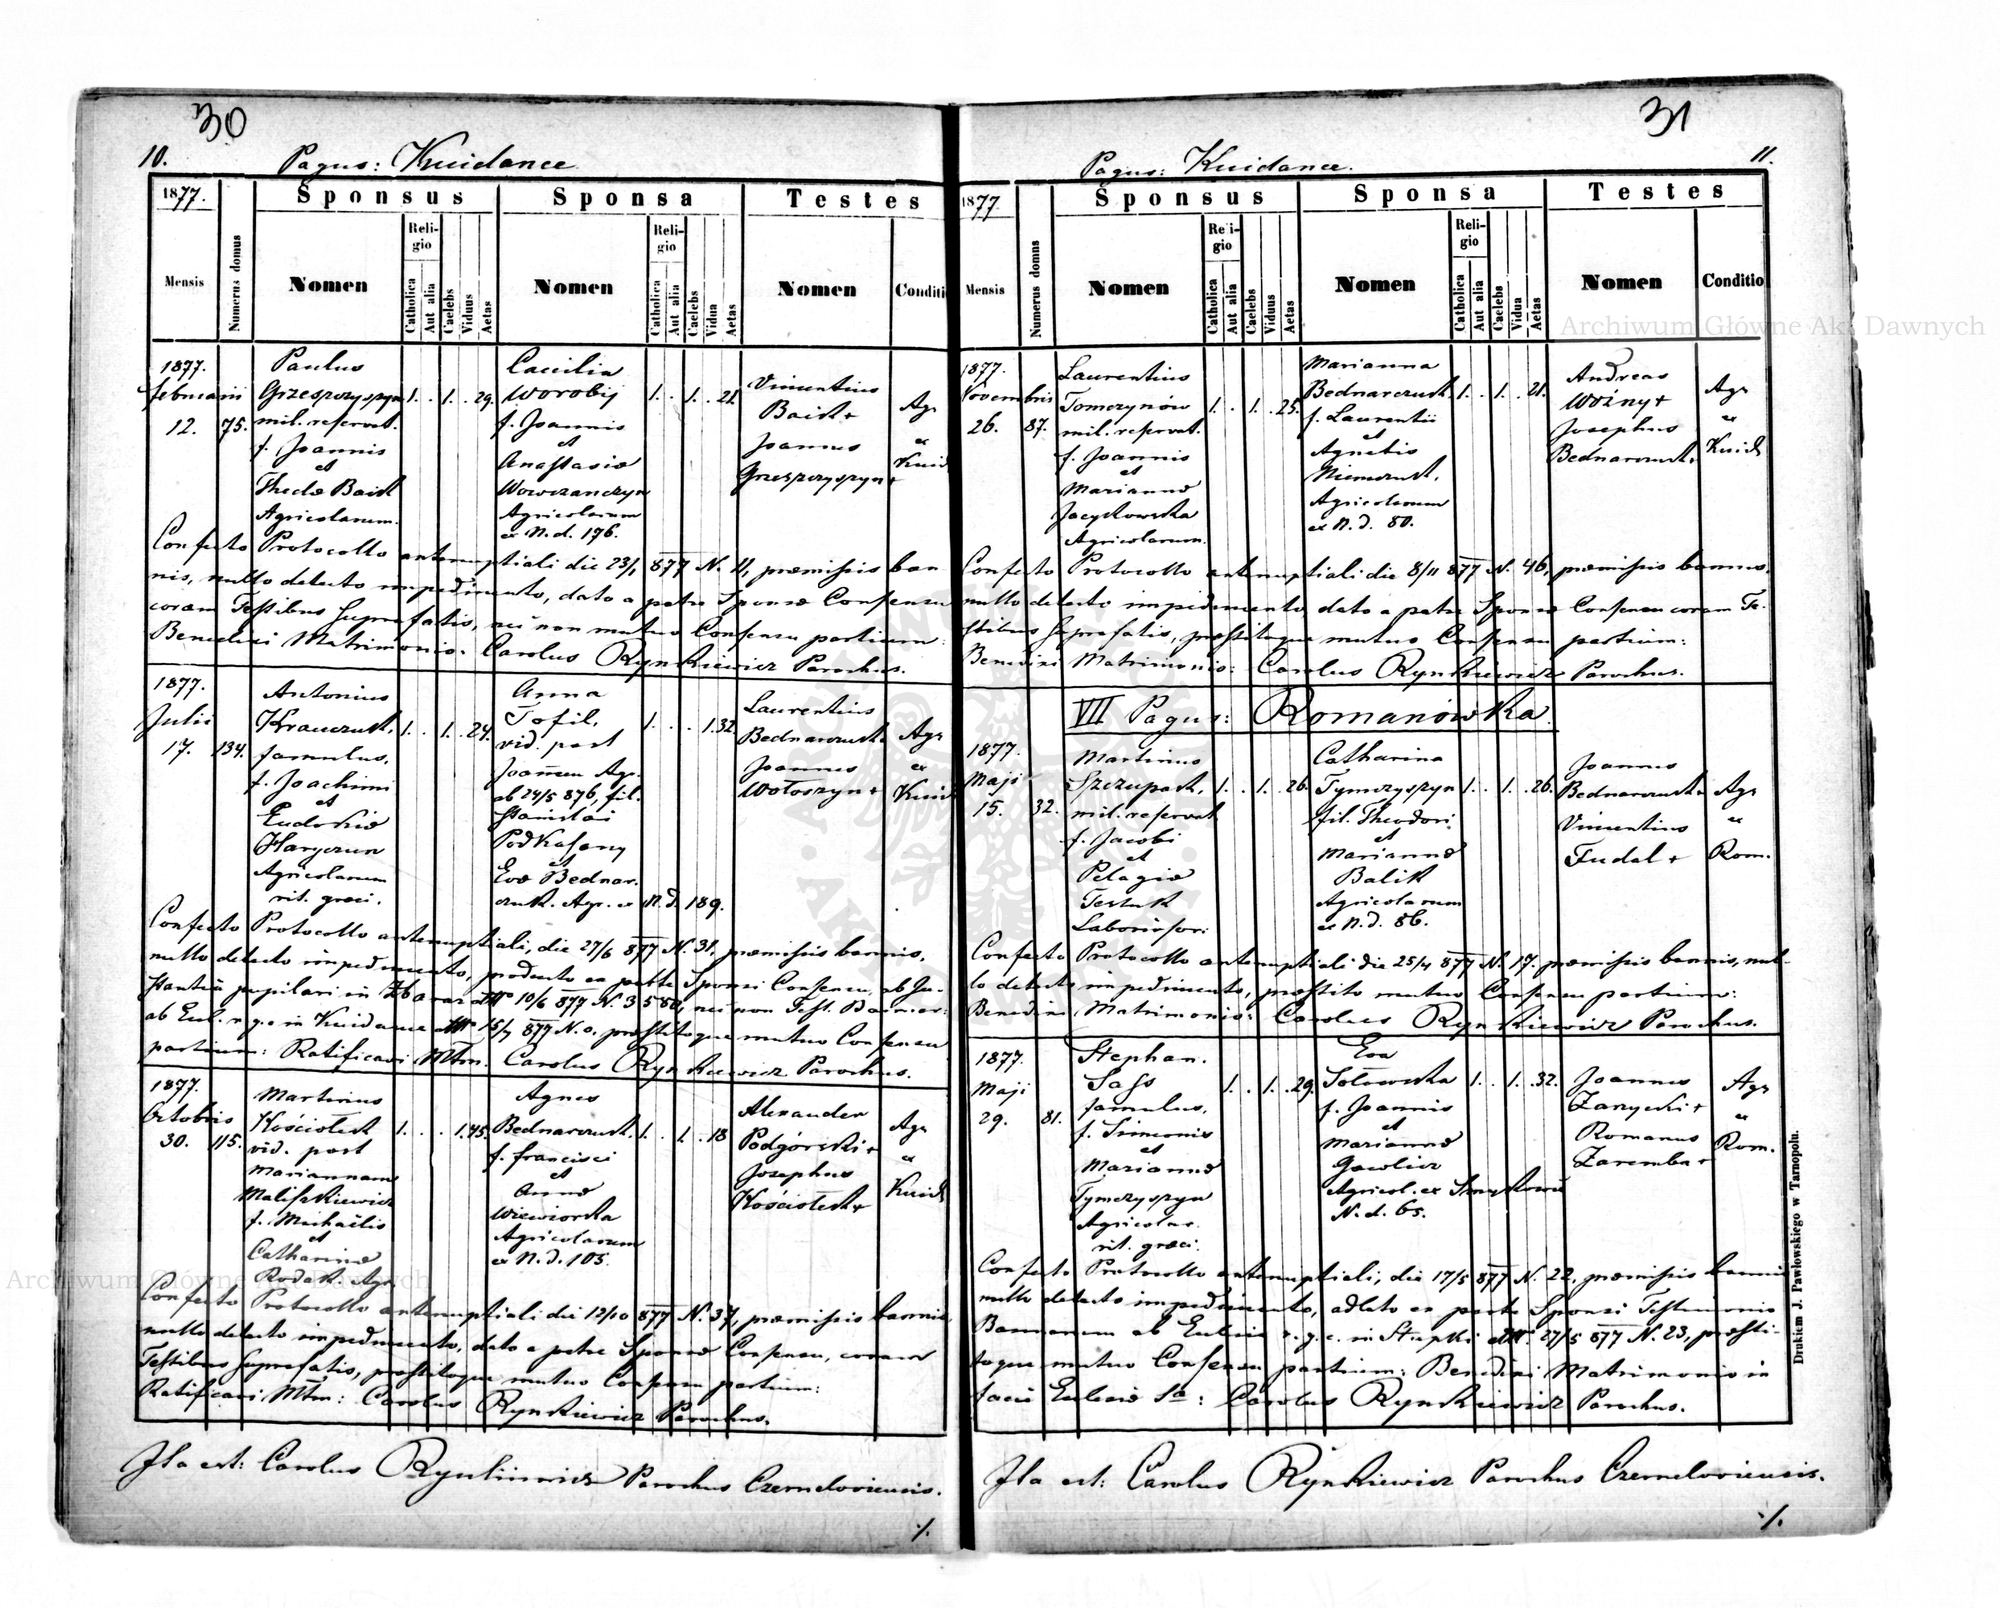 30
10.
Pagus: Kuidance
1877.
Sponsus
Sponsa
Testes
Mensis
Numerus domus
Nomen
Religio
Catholica
Aut alia
Caelebs
Viduus
Aetas
Nomen
Religio
Catholica
Aut alia
Caelebs
Vidua
Aetas
Nomen
Conditio
1877.
Februarii
12.
75.
Paulus
Grzeszczyszyn
mil. reservat.
f. Joannis
et
Theclæ Baick
Agricolarum.
1. . 1. . 29.
Cæcilia
Worobij
f. Joannis
et
Anastasiæ
Wowczanczyn
Agricolarum
ex N. d. 176.
1. . 1. . 21.
Vincentius
Joannes
Grzeszczyszyn +
Agr
ex
Kuid
Confecto Protocollo antenuptiali die 23/1 877 N. 11, præmissis ban-
nis, nullo detecto impedimento, dato a patre Sponsæ Consensu
coram Testibus suprafatis, nec non mutuo Consensu partium:
Benedixi Matrimonio: Carolus Rynkiewicz Parochus.
1877.
Julii
17.
134.
Antonius
Krawczuk,
famulus,
f. Joachimi
et
Eudokiæ
Haryczun
Agricolarum
rit. græci.
1. . 1. . 24.
Anna
Tofil,
vid. post
Joannem Agr.
ab 24/5 876, fil.
Stanislai
Podkasany
et
Evæ Bednar-
czuk. Agr. ex N. d. 189.
1. . . 1. 32.
Laurentius
Bednarczuk +
Joannes
Wołoszyn +
Agr
ex
Kuid
Confecto Protocollo antenuptiali, die 27/6 877 N. 31, præmissis bannis,
nullo detecto impedimento, producto ex parte Sponsi Consensu, ab In-
stantia pupilari in Zbaraz 10/6 877 N. 3580, nec non Test. Bannor.
ab Eccl. r. g. c. in Kuidance 15/7 877 N. 0, præstitoque mutuo Consensu
partium: Ratificavi Mtm. Carolus Rynkiewicz Parochus.
1877.
Octobris
30.
115.
Martinus
Kościołek
vid. post
Mariannam
Maliszkiewicz
f. Michaëlis
et
Catharinæ
Rodak. Agr.
1. . . 1. 45.
Agnes
Bednarczuk.
f. Francisci
et
Annæ
Wiewiorka
Agricolarum
ex N. d. 105.
1. . 1. . 18
Alexander
Podgórski +
Josephus
Kościołek +
Agr
ex
Kuid
Confecto Protocollo antenuptiali die 12/10 877 N. 37, præmissis bannis,
nullo detecto impedimento, dato a patre Sponsæ Consensu, coram
Testibus suprafatis, præstitoque mutuo Consensu partium:
Ratificavi Mtm: Carolus Rynkiewicz Parochus.
Ita est: Carolus Rynkiewicz Parochus Czernelowiensis.
./.
31
11.
Pagus: Kuidance.
1877
Sponsus
Sponsa
Testes
Mensis
Numerus domus
Nomen
Religio
Catholica
Aut alia
Caelebs
Viduus
Aetas
Nomen
Religio
Catholica
Aut alia
Caelebs
Vidua
Aetas
Nomen
Conditio
1877.
Novembris
26.
87.
Laurentius
Tomczynów
mil. reservat.
f. Joannis
et
Mariannæ
Jacykowska
Agricolarum.
1. . 1. . 25.
Marianna
Bednarczuk
f. Laurentii
et
Agnetis
Niemczuk,
Agricolarum
ex N. d. 80.
1. . 1. . 21.
Andreas
Woźny +
Josephus
Bednarczuk +
Agr
ex
Kuid
Confecto Protocollo antenuptiali die 8/11 877 N. 46, præmissis bannis,
nullo detecto impedimento, dato a patre Sponsæ Consensu coram Te-
stibus suprafatis, præstitoque mutuo Consensu partium:
Benedixi Matrimonio: Carolus Rynkiewicz Parochus.
VII Pagus: Romanówka.
1877.
Maji
15.
32.
Martinus
Szczupak,
mil. reservat
f. Jacobi
et
Pelagiæ
Testuk
1. . 1. . 26.
Catharina
Tymczyszyn
fil. Theodori
et
Mariannæ
Balik
Agricolarum
ex N. d. 86.
1. . 1. . 26.
Joannes
Bednarczuk +
Vincentius
Fudal +
Agr
ex
Rom.
Confecto Protocollo antenuptiali die 25/4 877 N. 17. præmissis bannis, nul-
lo detecto impedimento, præstito mutuo Consensu partium:
Benedixi Matrimonio: Carolus Rynkiewicz Parochus.
1877.
Maji
29.
81.
Stephan.
Sass
famulus,
f. Simeonis
et
Mariannæ
Tymczyszyn
Agricolar.
rit. græci.
1. . 1. . 29.
Eva
Sołowska
f. Joannis
et
Mariannæ
Gawlicz
Agricol. ex Smykowce
N. d. 65.
1. . 1. . 32.
Joannes
Zarycki +
Romanus
Zaremba +
Agr
ex
Rom.
Confecto Protocollo antenuptiali, die 17/5 877 N. 22, præmissis bannis
nullo detecto impedimento, adlato ex parte Sponsi Testimonio
Bannorum ab Ecclesia r. g. c. in Stupki 27/5 877 N. 23, præsti-
toque mutuo Consensu partium: Benedixi Matrimonio in
facie Ecclesiæ Sæ: Carolus Rynkiewicz Parochus.
Ita est: Carolus Rynkiewicz Parochus Czernelowiensis.
./.
Drukiem J. Pawłowskiego w Tarnopolu.
Archiwum Główne Akt Dawnych
Archiwum Główne Akt Dawnych